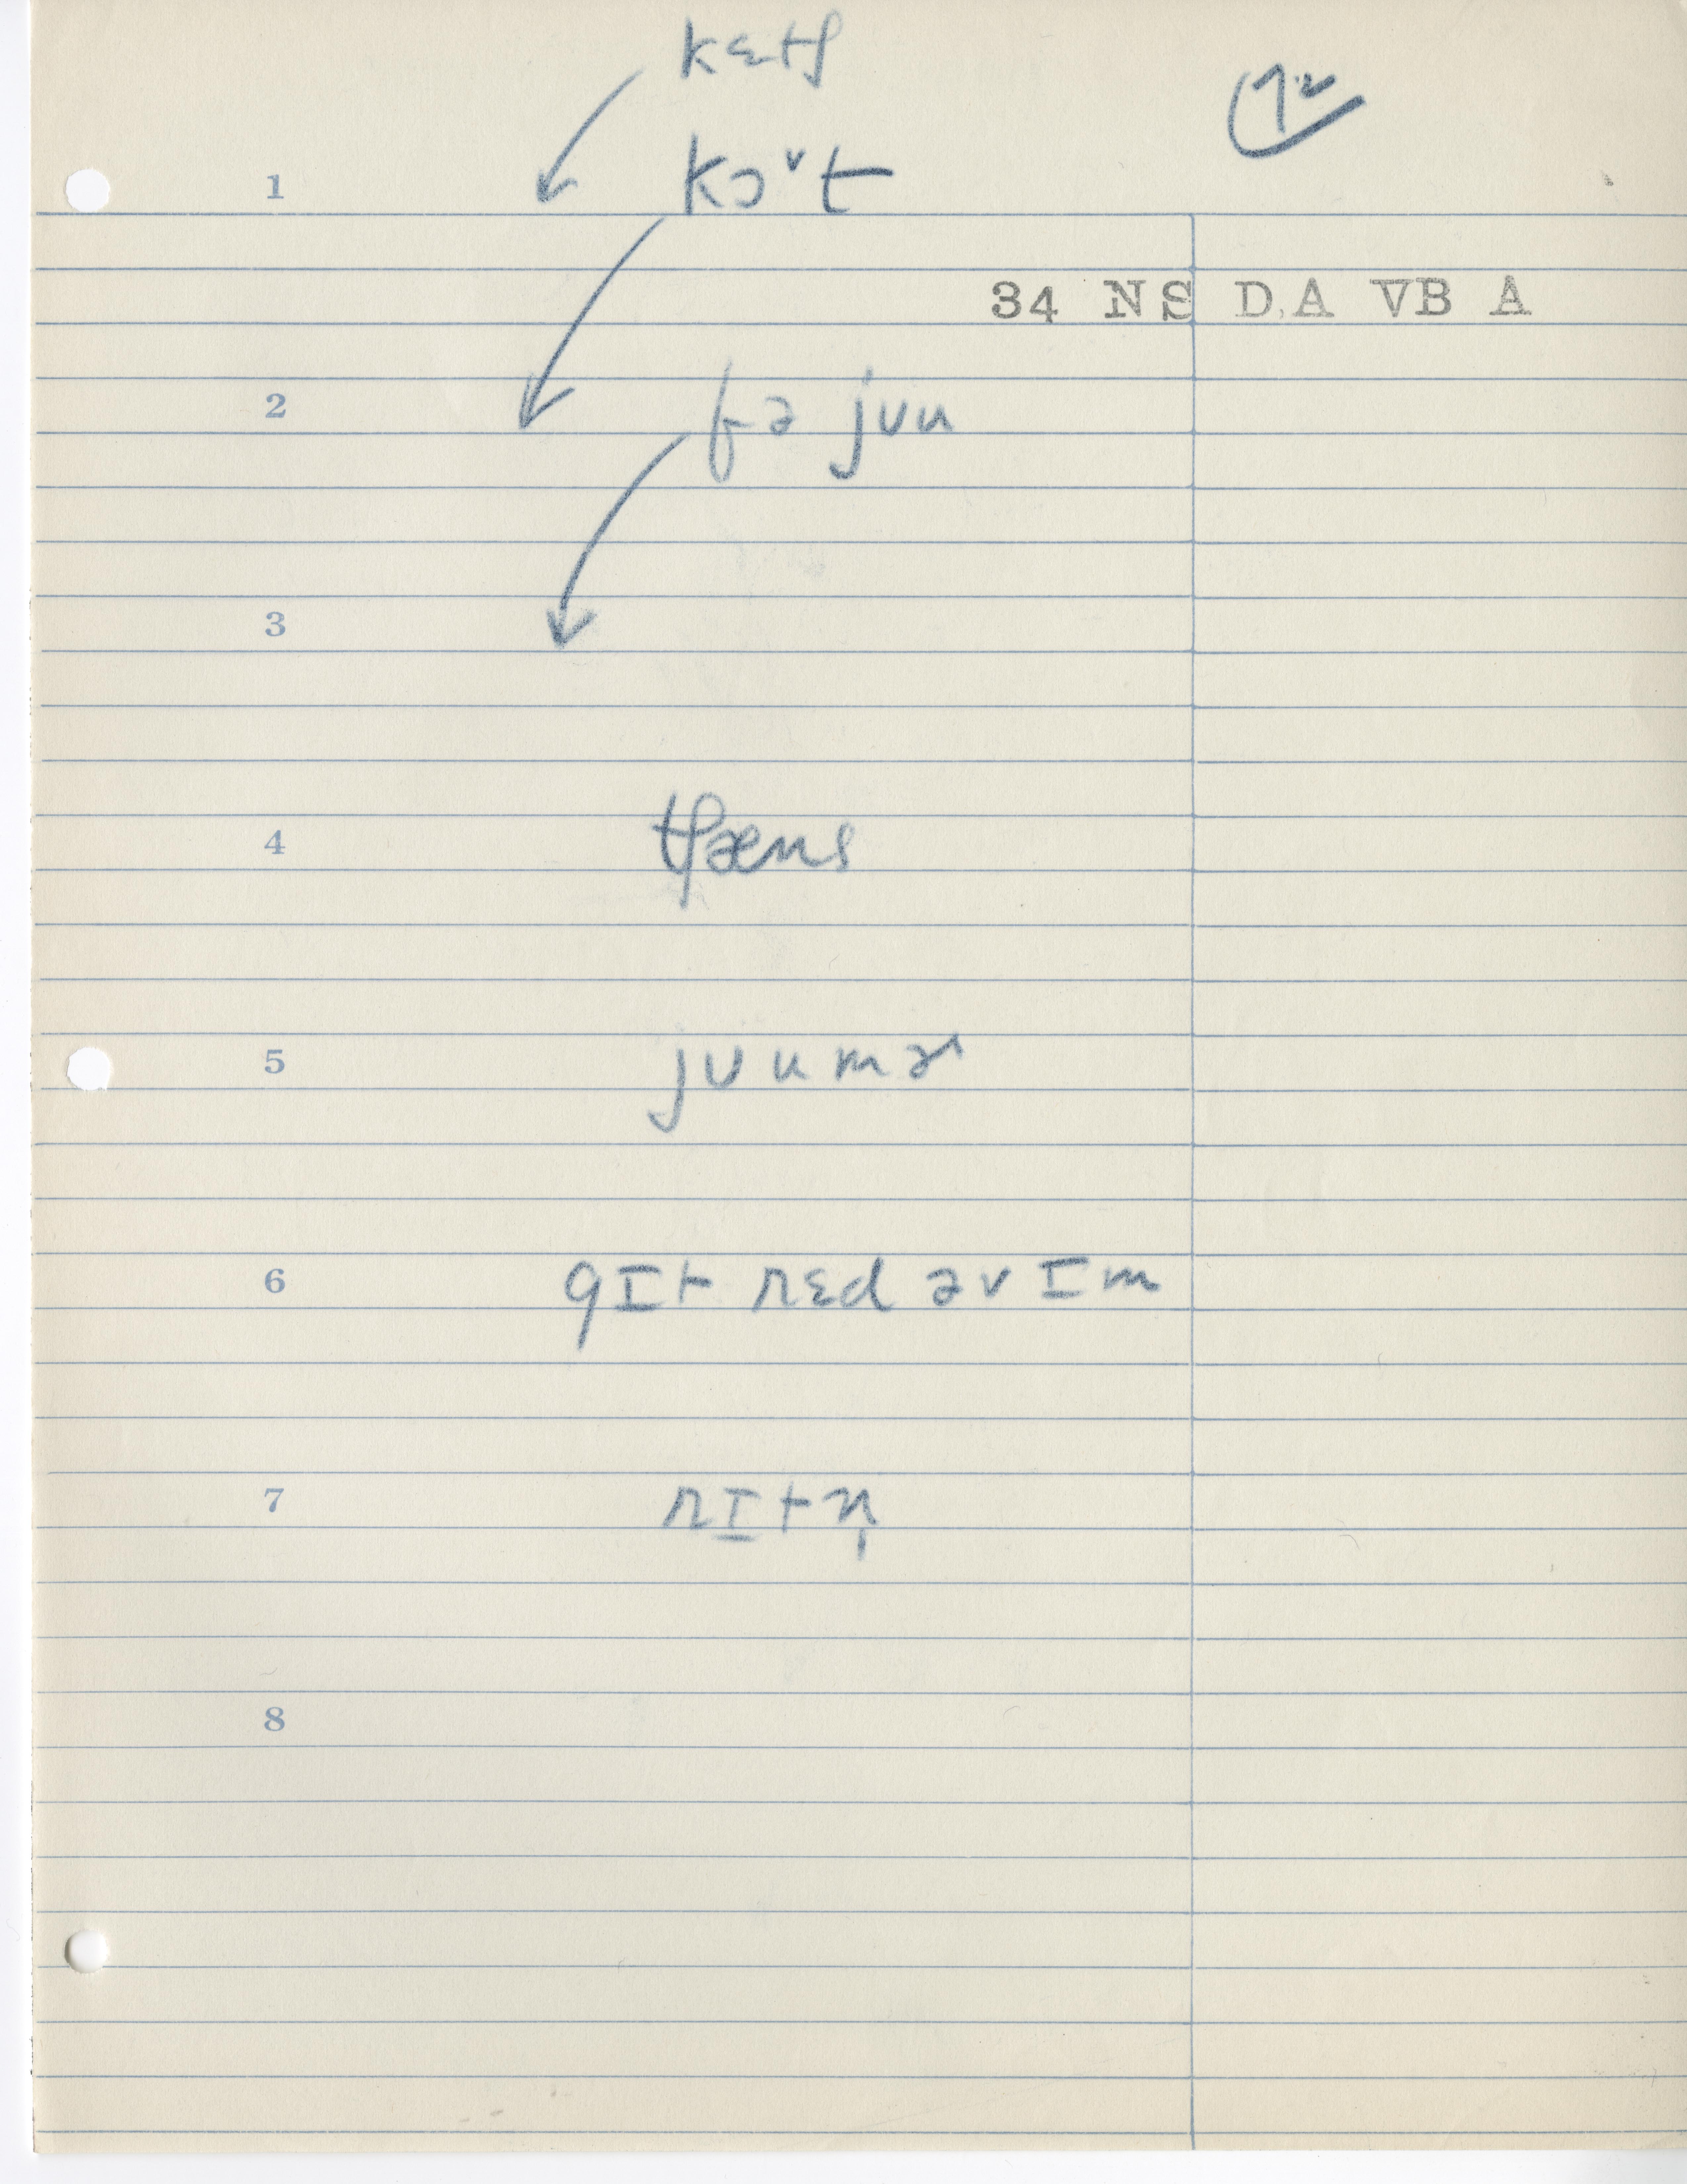 kɛtʃ
12
1
kɔᵛt
34 NS D.A VB A
2
fə juu
3
4
tʃæns
5
jʊumɚ
6
gɪt rɛd əv ɪm
7
rɪtn̩
8